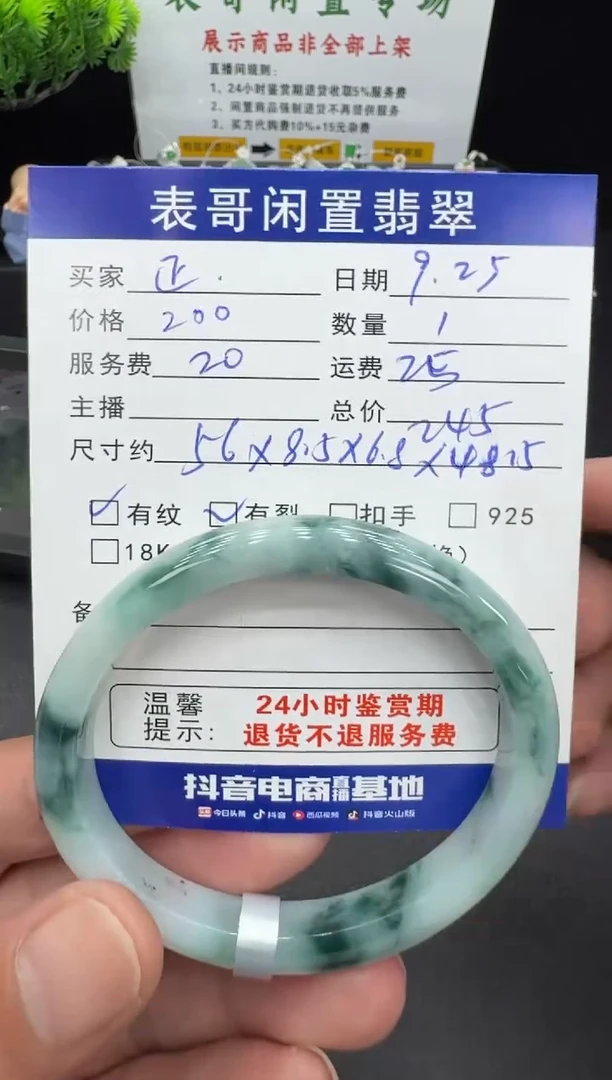 表哥闲置专场
展示商品非全部上架
直播间规则：
1、24小时鉴赏期退货收取5%服务费
2、闲置商品强制退货不再提供服务
3、买方代购费10%+15元杂费
表哥闲置翡翠
买家 正. 日期 9.25
价格 200 数量 1
服务费 20 运费 25
主播 总价 245
尺寸约 56×8.5×6.8×48.5
有纹 有裂 扣手 925
18K
备
温馨提示： 24小时鉴赏期
退货不退服务费
抖音电商直播基地
今日头条 抖音 西瓜视频 抖音火山版